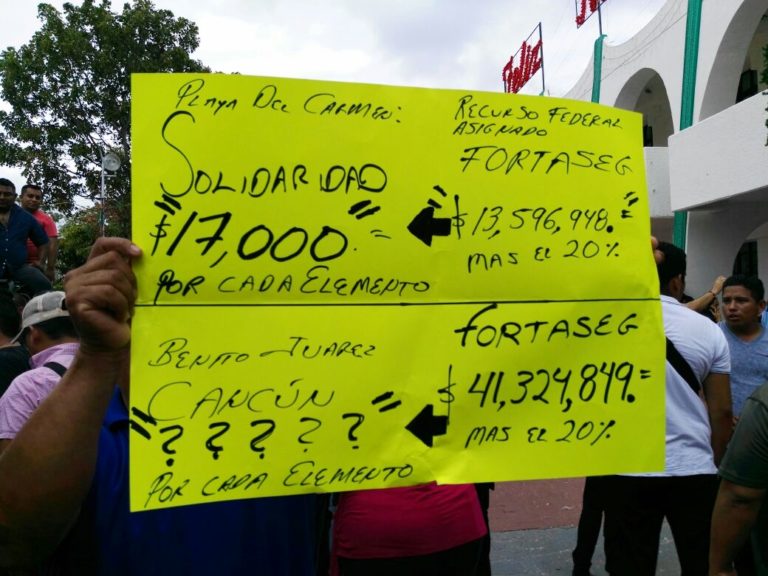 PLAYA DEL CARMEN:
SOLIDARIDAD
"$17,000".=
POR CADA ELEMENTO
RECURSO FEDERAL
ASIGNADO
FORTASEG
"$13,596,948.="
MAS EL 20%
BENITO JUAREZ
CANCÚN
"? ? ? ? ?"
POR CADA ELEMENTO
FORTASEG
$41,324,849.=
MAS EL 20%